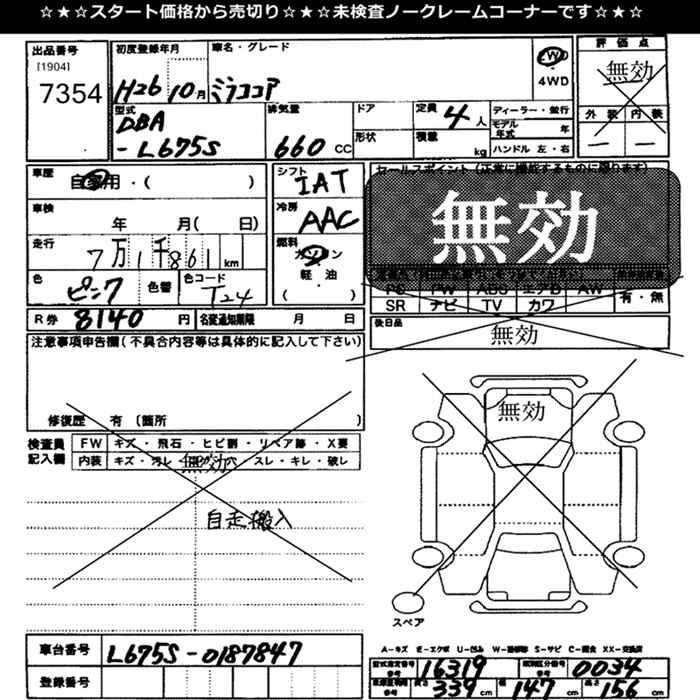 ☆★☆★スタート価格から売切り☆★☆★未検査ノークレームコーナーです☆★☆
出品番号
[1904]
7354
初度登録年月
H26 10月
車名・グレード
ミラココア
2WD
4WD
評価点
無効
外装 内装
— —
型式
DBA
-L675S
排気量
660 CC
ドア
形状
定員
4人
積載
kg
ディーラー・並行
モデル年式 年
ハンドル 左・右
車歴
自家用・( )
車検
年 月( 日)
走行
7万1千861km
色
ピンク
色替
色コード
T24
シフト
IAT
冷房
AAC
燃料
ガソリン
軽油
( )
セールスポイント(正常に機能するものに限ります)
無効
PS PW ABS エアB AW
SR ナビ TV カワ
有・無
R券 8140円
名変通知期限 月 日
後日品
無効
注意事項申告欄(不具合内容等は具体的に記入して下さい)
修復歴 有 〔箇所 〕
検査員記入欄
FW キズ・飛石・ヒビ割・リペア跡・X要
内装 キズ・汚レ・穴・スレ・キレ・破レ
無効
自走搬入
無効
スペア
車台番号
L675S-0187847
登録番号
A-キズ E-エクボ U-凹み W-補修跡 S-サビ C-腐食 XX-交換済
型式指定番号 参考
16319
類別区分番号 参考
0034
長さ 339cm
幅 147cm
高さ 156cm